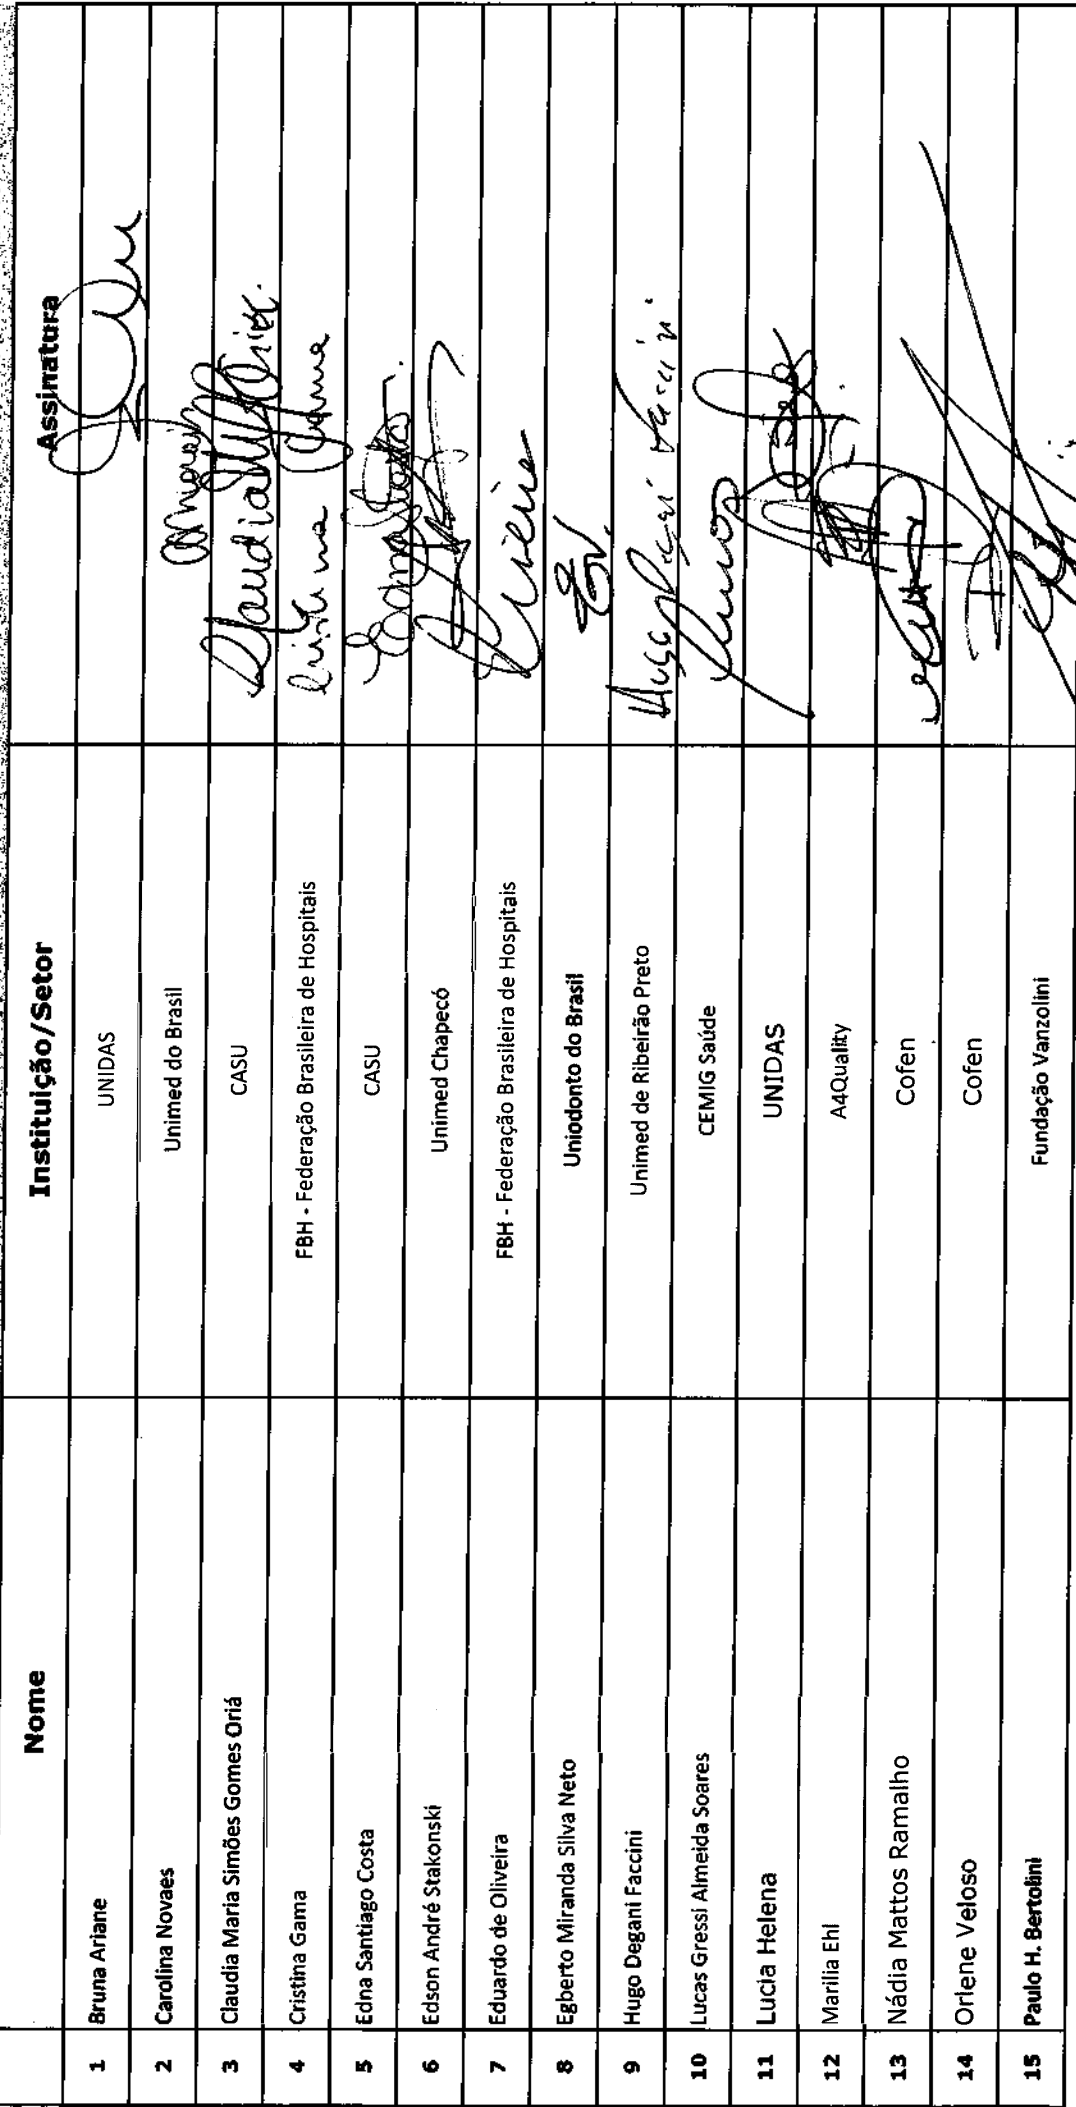 Nome Instituição/Setor Assinatura
1 Bruna Ariane UNIDAS
2 Carolina Novaes Unimed do Brasil
3 Claudia Maria Simões Gomes Oriá CASU
4 Cristina Gama FBH - Federação Brasileira de Hospitais Cristina Gama
5 Edna Santiago Costa CASU
6 Edson André Stakonski Unimed Chapecó
7 Eduardo de Oliveira FBH - Federação Brasileira de Hospitais
8 Egberto Miranda Silva Neto Uniodonto do Brasil
9 Hugo Degani Faccini Unimed de Ribeirão Preto Hugo Degani Faccini
10 Lucas Gressi Almeida Soares CEMIG Saúde
11 Lucia Helena UNIDAS
12 Marilia Ehl A4Quality
13 Nádia Mattos Ramalho Cofen
14 Orlene Veloso Cofen
15 Paulo H. Bertolini Fundação Vanzolini